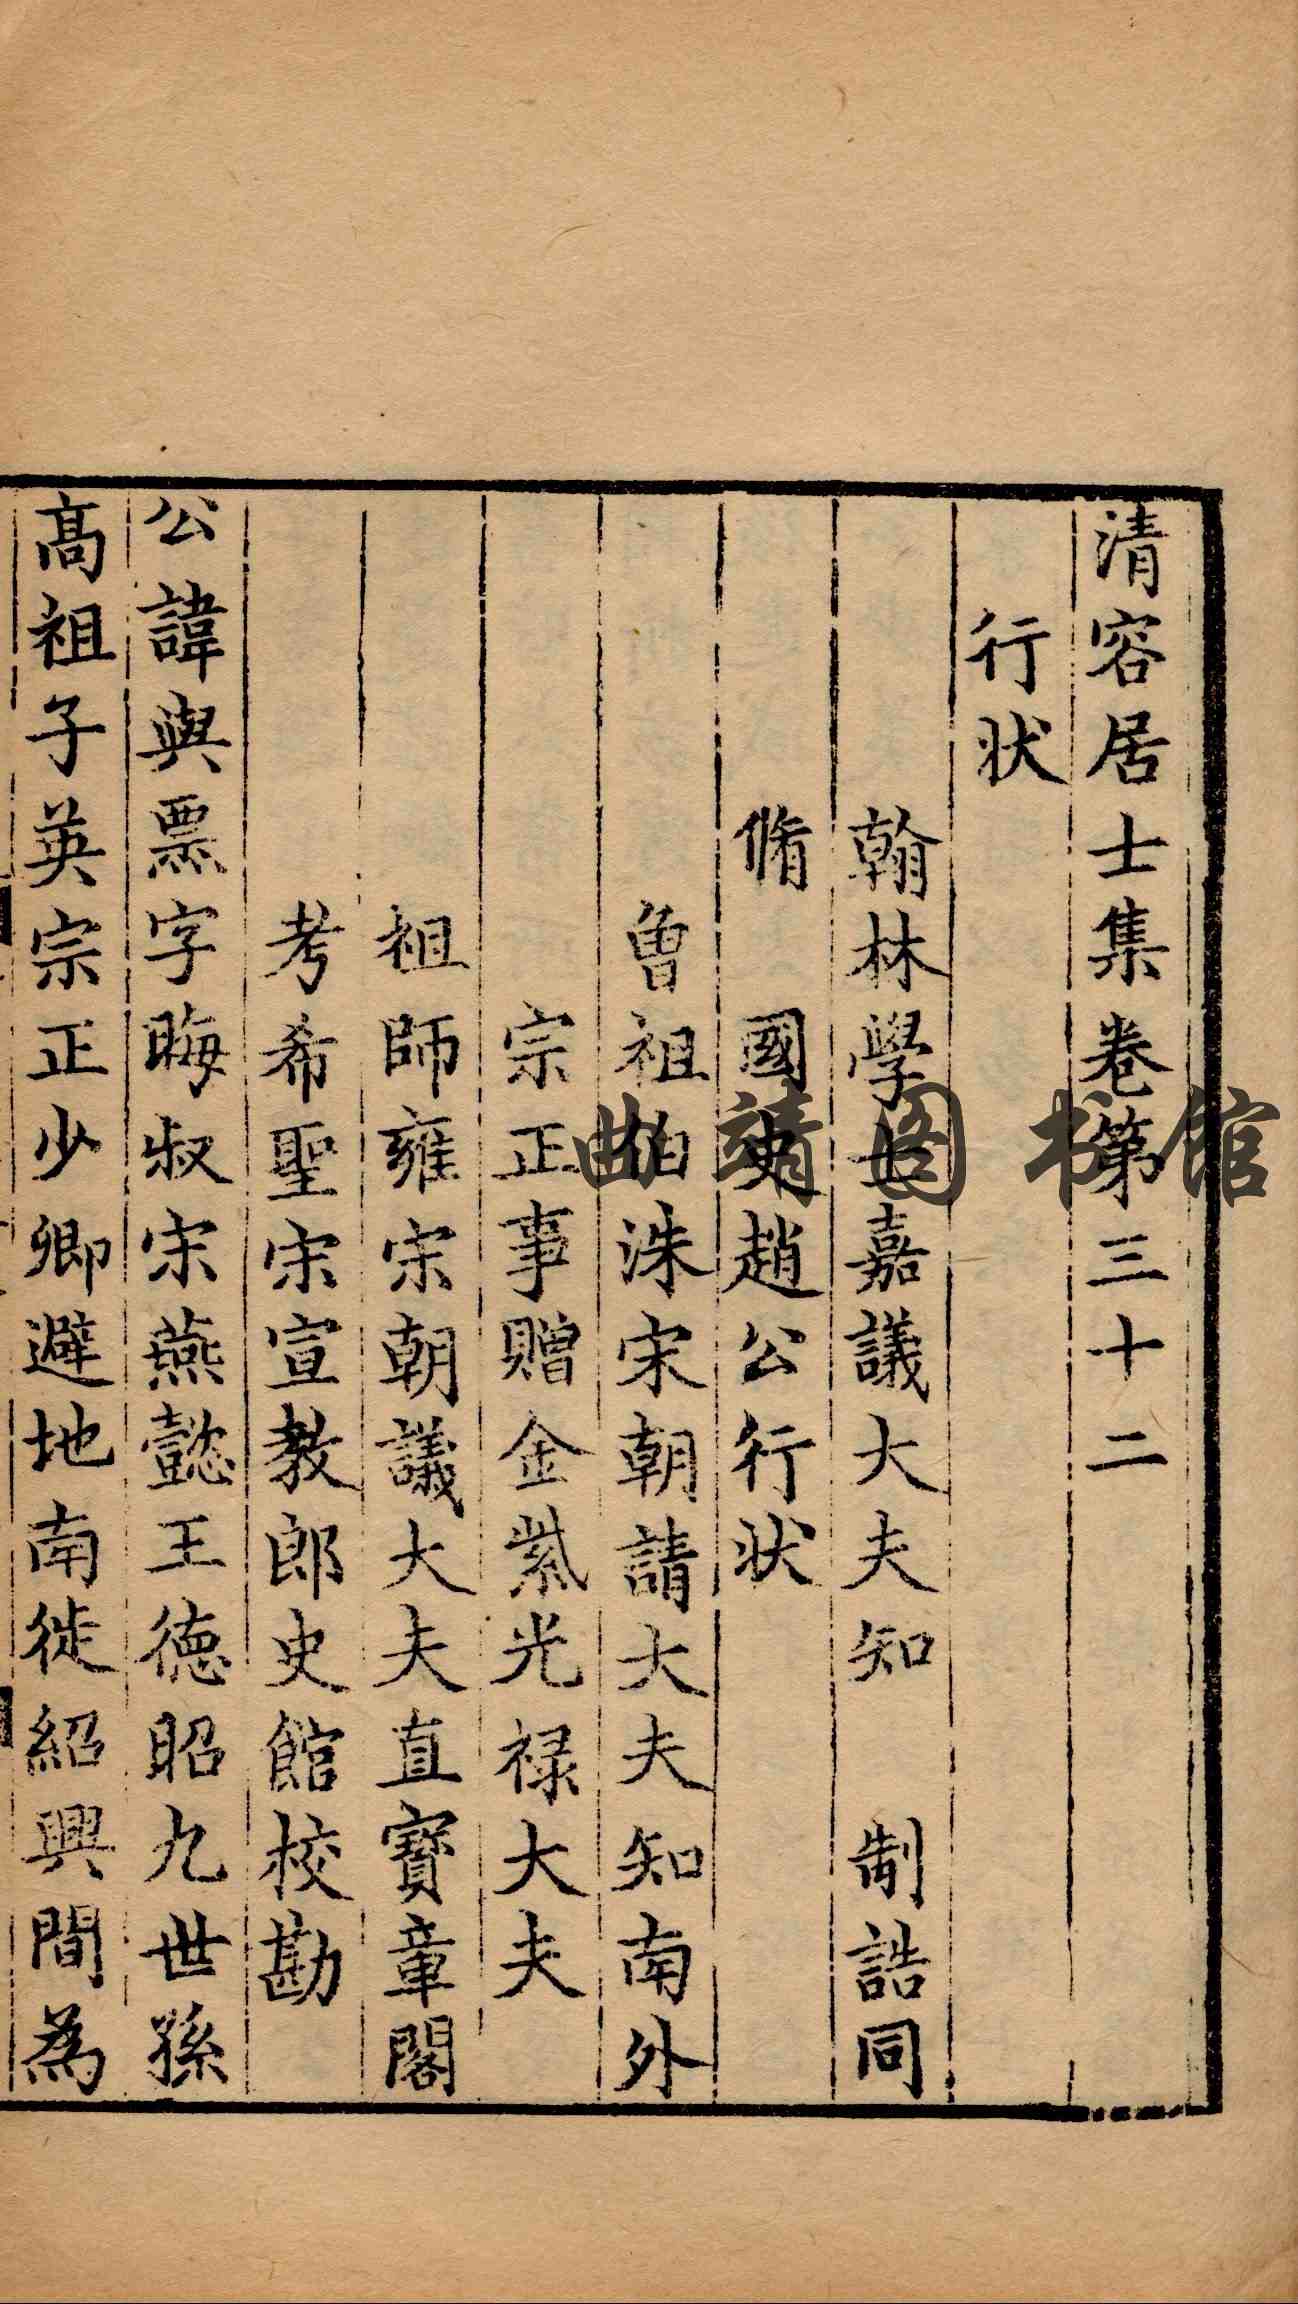 清容居士集卷第三十二
行狀
翰林學士嘉議大夫知 制誥同
脩 國史趙公行狀
曾祖伯洙宋朝請大夫知南外
宗正事贈金紫光禄大夫
祖師雍宋朝議大夫直寶章閣
考希聖宋宣教郎史館校勘
公諱與票字晦叔宋燕懿王德昭九世孫
高祖子英宗正少卿避地南徙紹興間為
曲靖图书馆